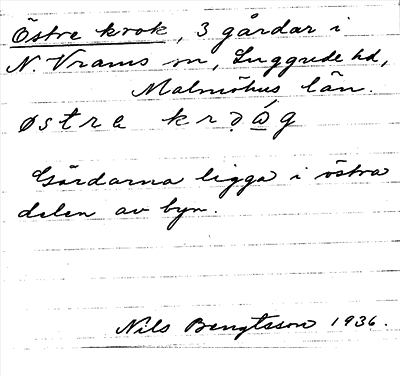 Östre krok, 3 gårdar i
N. Vrams sn, Luggude hd,
Malmöhus län.
østre krǫώg
Gårdarna ligga i östra
delen av byn.
Nils Bengtsson 1936.